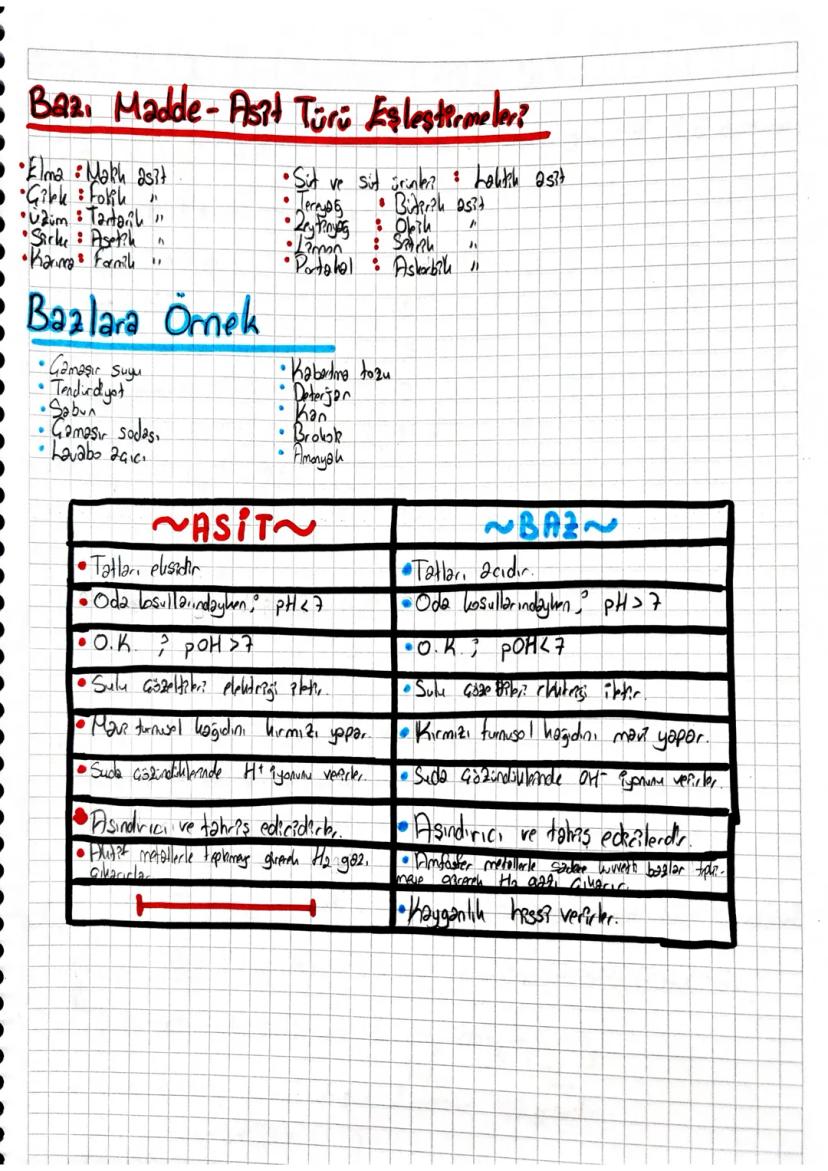 Bazı Madde - Asit Türü Eşleştirmeleri
• Elma : Malik asit
• Çilek : Folik "
• Üzüm : Tartarik "
• Sirke : Asetik "
• Karınca : Formik "
• Süt ve süt ürünleri : Laktik asit
• Tereyağ : Bütirik asit
• Zeytinyağ : Oleik "
• Limon : Sitrik "
• Portakal : Askorbik "
Bazlara Örnek
• Çamaşır suyu
• Tendürdiyot
• Sabun
• Çamaşır sodası
• Lavabo açıcı
• Kabartma tozu
• Deterjan
• Kan
• Brokoli
• Amonyak
~ASİT~ ~BAZ~
• Tatları ekşidir. • Tatları acıdır.
• Oda koşullarındayken; pH < 7 • Oda koşullarındayken; pH > 7
• O.K. ; pOH > 7 • O.K. ; pOH < 7
• Sulu çözeltileri elektriği iletir. • Sulu çözeltileri elektriği iletir.
• Mavi turnusol kağıdını kırmızı yapar. • Kırmızı turnusol kağıdını mavi yapar.
• Suda çözündüklerinde H+ iyonunu verirler. • Suda çözündüklerinde OH- iyonunu verirler.
• Aşındırıcı ve tahriş edicidirler. • Aşındırıcı ve tahriş edicilerdir.
• Aktif metallerle tepkimeye girerek H2 gazı
çıkarırlar.
• Amfoter metallerle sadece kuvvetli bazlar tepki-
meye girerek H2 gazı çıkarır.
• Kayganlık hissi verirler.